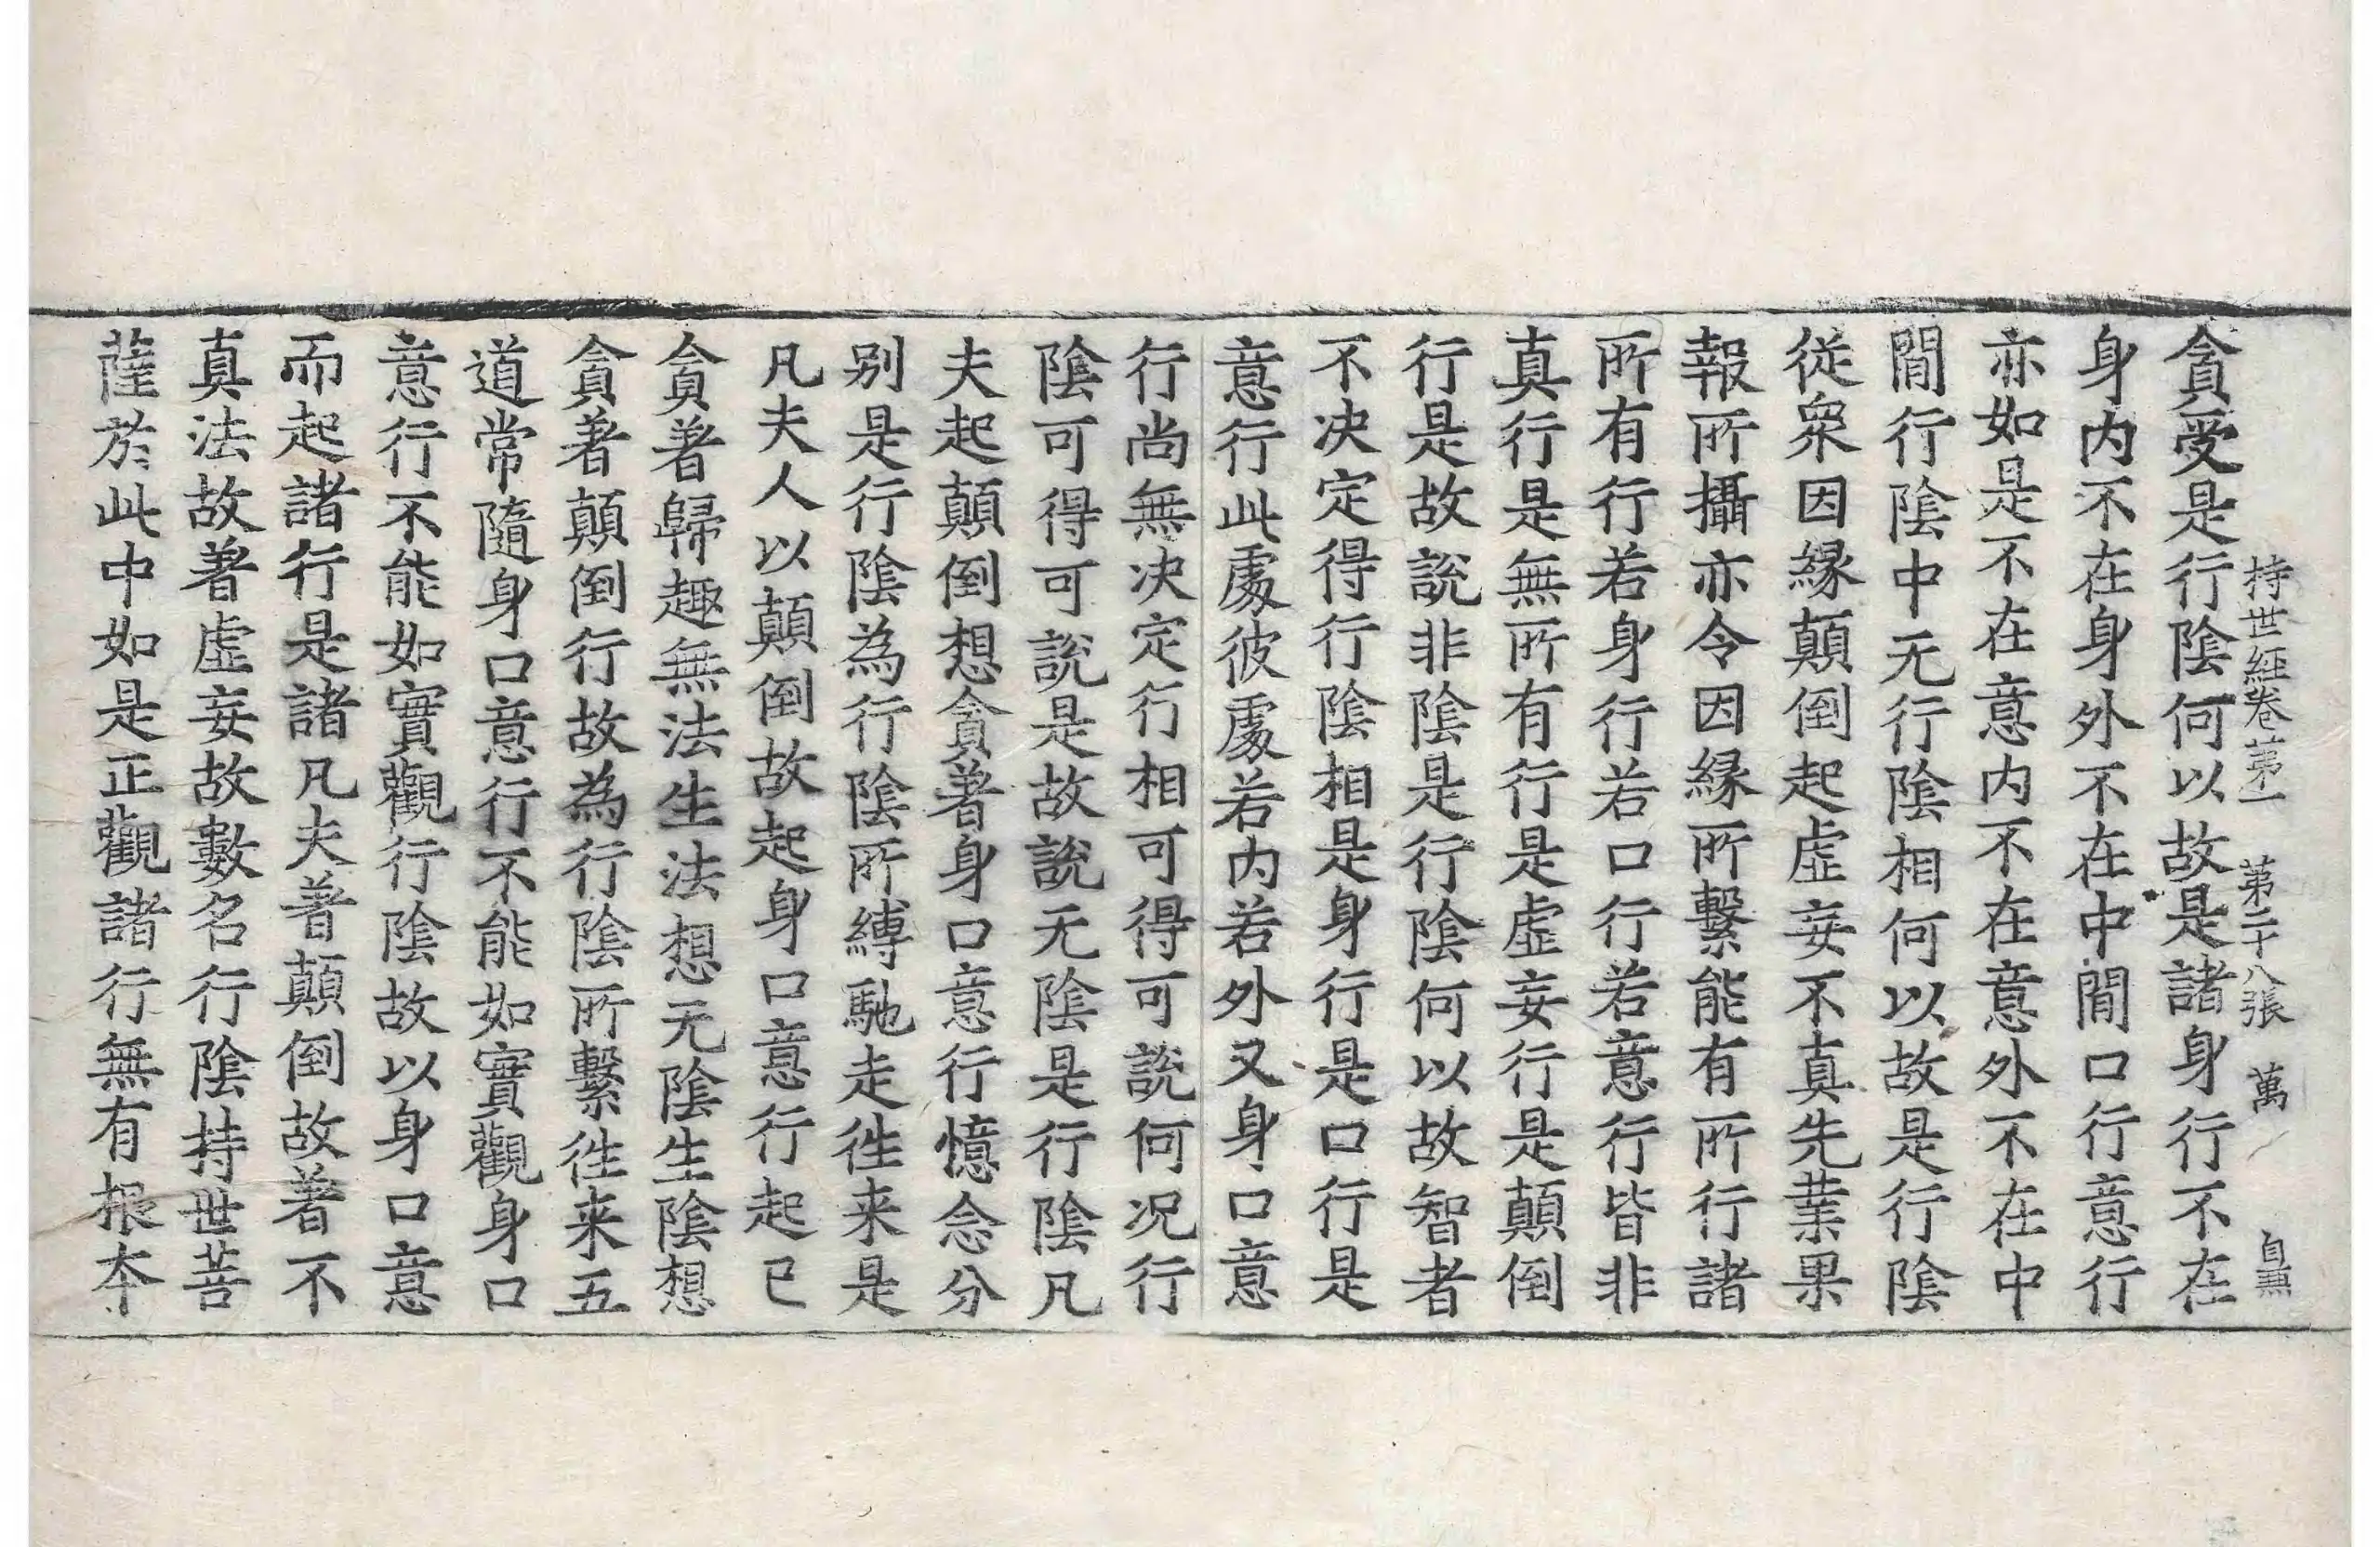 持世經卷第一　第二十八張　萬
貪受是行陰何以故是諸身行不在
身内不在身外不在中間口行意行
亦如是不在意内不在意外不在中
間行陰中无行陰相何以故是行陰
從衆因緣顛倒起虛妄不真先業果
報所攝亦令因緣所繫能有所行諸
所有行若身行若口行若意行皆非
真行是無所有行是虛妄行是顛倒
行是故說非陰是行陰何以故智者
不决定得行陰相是身行是口行是
意行此處彼處若内若外又身口意
行尚無决定行相可得可說何况行
陰可得可說是故說无陰是行陰凡
夫起顛倒想貪著身口意行憶念分
别是行陰為行陰所縛馳走徃来是
凡夫人以顛倒故起身口意行起已
貪著歸趣無法生法想无陰生陰想
貪著顛倒行故為行陰所繫徃来五
道常隨身口意行不能如實觀身口
意行不能如實觀行陰故以身口意
而起諸行是諸凡夫著顛倒故著不
真法故著虛妄故數名行陰持世菩
薩於此中如是正觀諸行無有根本